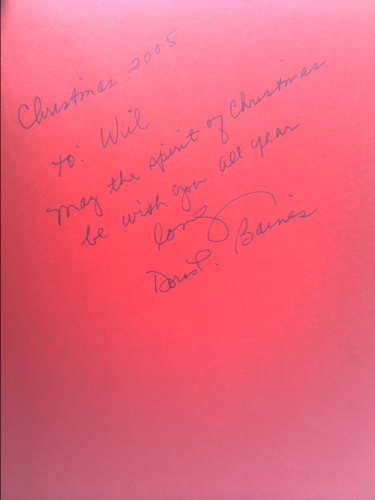 Christmas 2005
To: Wil
May the spirit of Christmas
be wish you all year
long
Doris P. Baines